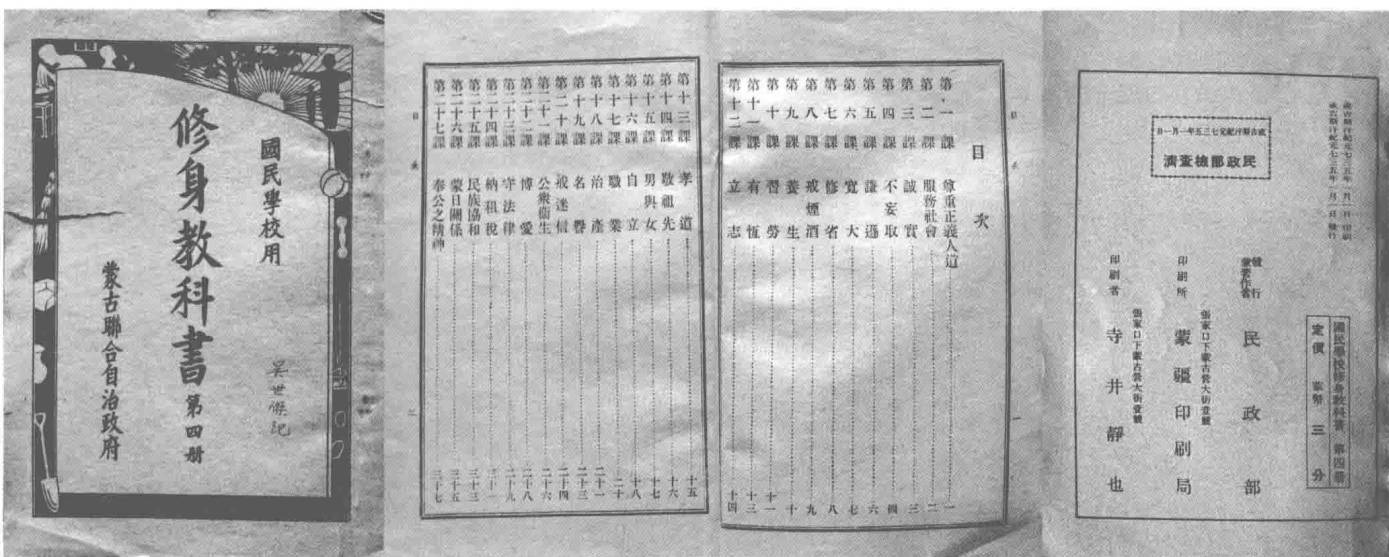 國民學校用
修身教科書 第四册
蒙古聯合自治政府
目次
第一課 尊重正義人道 一
第二課 服務社會 二
第三課 誠實 三
第四課 不妄取 四
第五課 謙遜 六
第六課 寬大 七
第七課 修省 八
第八課 戒煙酒 九
第九課 養生 十
第十課 習勞 十一
第十一課 有恆 十三
第十二課 立志 十四
一
第十三課 孝道 十五
第十四課 敬祖先 十六
第十五課 男與女 十七
第十六課 自立 十八
第十七課 職業 二十
第十八課 治產 二十一
第十九課 名譽 二十三
第二十課 戒迷信 二十四
第二十一課 公衆衞生 二十六
第二十二課 博愛 二十八
第二十三課 守法律 二十九
第二十四課 納租稅 三十一
第二十五課 民族協和 三十三
第二十六課 蒙日關係 三十五
第二十七課 奉公之精神 三十七
目次
二
成吉斯汗紀元七三五年一月一日印刷
成吉斯汗紀元七三五年一月一日發行
成吉斯汗紀元七三五年一月一日
民政部檢查濟
國民學校修身教科書 第四册
定價 蒙幣 三分
發行兼著作者 民政部
張家口下蒙古營大街壹號
印刷所 蒙疆印刷局
張家口下蒙古營大街壹號
印刷者 寺井靜也